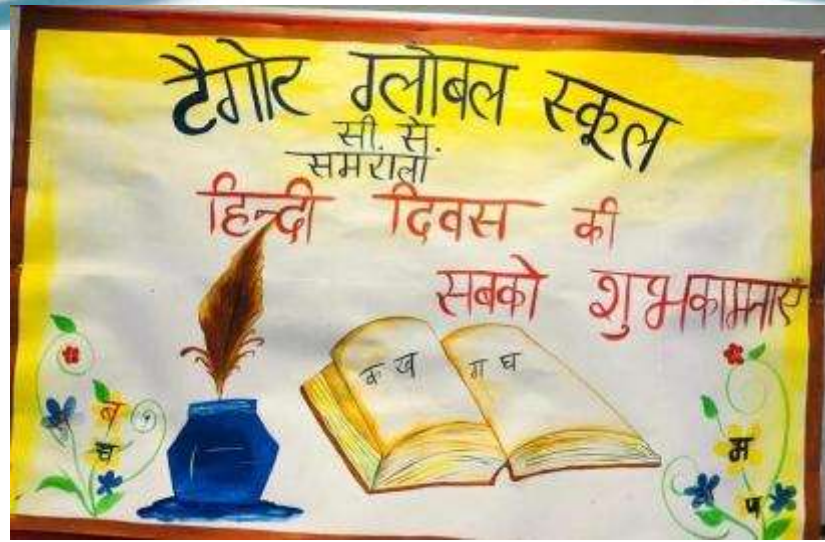 टैगोर ग्लोबल स्कूल
सी. सै.
समराला
हिन्दी दिवस की
सबको शुभकाम्नाएँ
क ख ग घ
ब
च
म
प